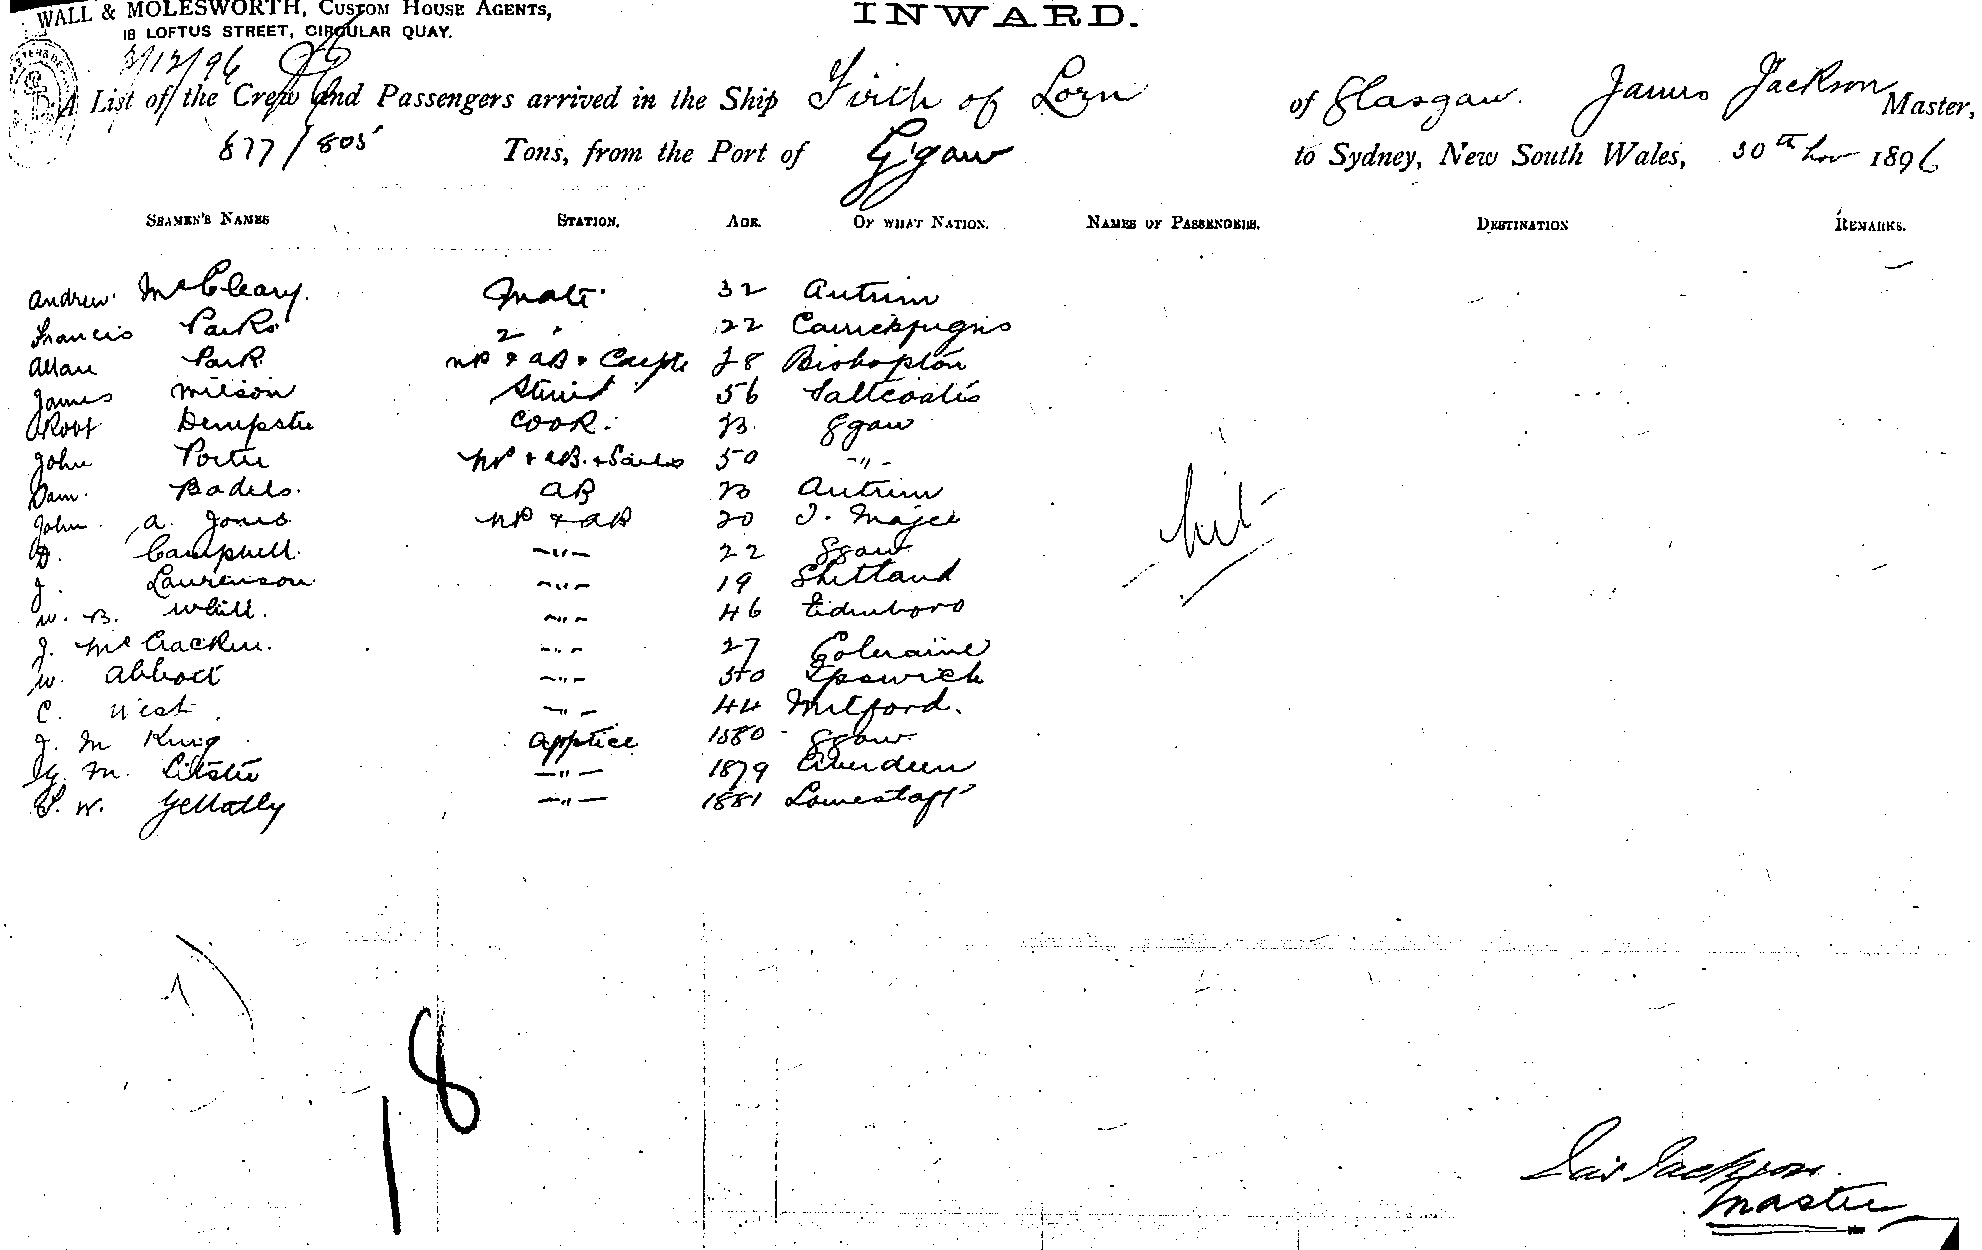 WALL & MOLESWORTH, CUSTOM HOUSE AGENTS,
18 LOFTUS STREET, CIRCULAR QUAY.
INWARD.
3/12/96
A List of the Crew and Passengers arrived in the Ship Firth of Lorn of Glasgow. James Jackson Master,
877/805 Tons, from the Port of G'gow to Sydney, New South Wales, 30th Nov 1896
SEAMEN'S NAMES STATION. AGE. OF WHAT NATION. NAMES OF PASSENGERS. DESTINATION REMARKS.
Andrew McCleary. Mate 32 Antrim
Francis Parks 2 " 22 Carrickfugris
Allan Park 28 Bishopton
James Wilson Stewd 56 Saltcoats
Robt Dempster Cook. 23 Ggow
John Porter NP & AB. & Sails 50 -"-
Sam. AB 23 Antrim
John A. Jones NP & AB 20 I. Magee
D. Campbell. -"- 22 Ggow
J. Laurenson -"- 19 Shetland
W. B. -"- 46 Edinboro
J. McCracken. -"- 27 Coleraine
W. Abbott -"- 50 Ipswich
C. West -"- 44 Milford.
J. M King Apptice 1880 Ggow
G. M. Litster -"- 1879 Aberdeen
S. W. Gellatly -"- 1881 Lowestoft
Nil
18
Jas Jackson
Master